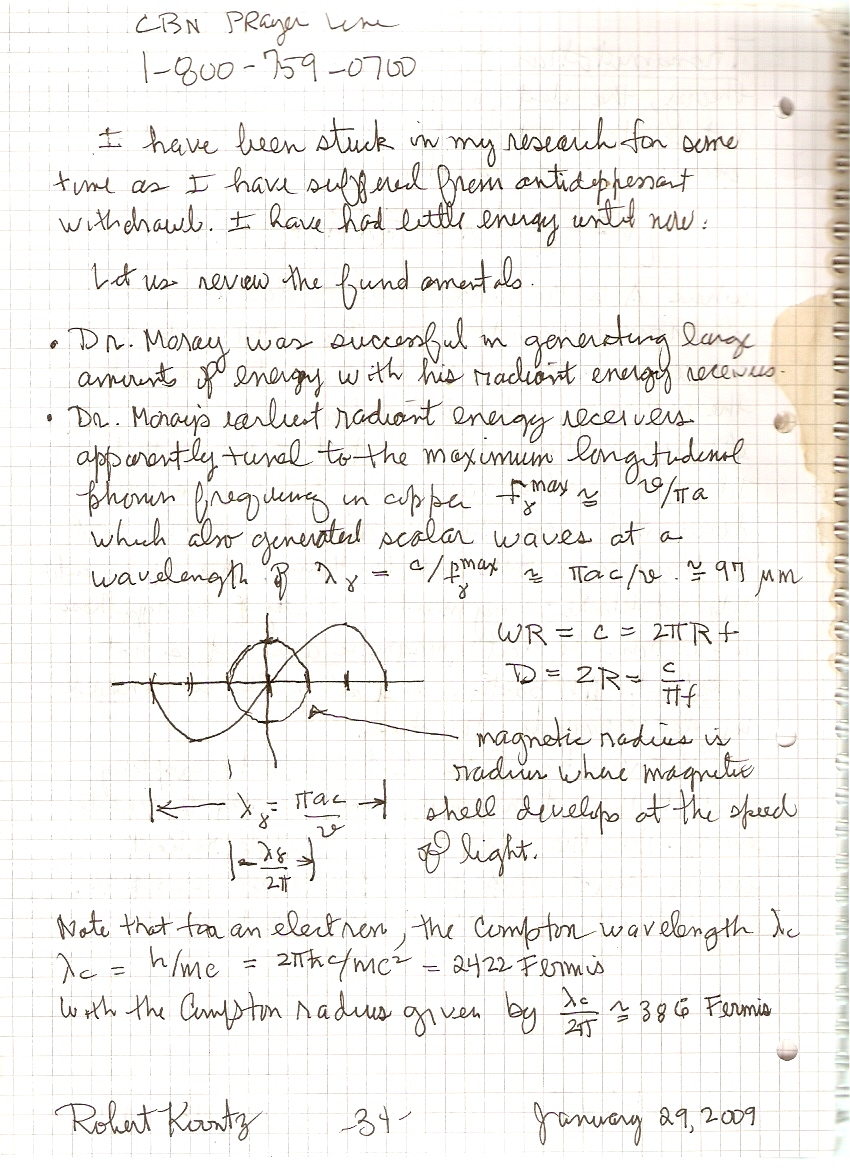 CBN PRayer Line
1-800-759-0700
I have been stuck in my research for some
time as I have suffered from antideppresant
withdrawl. I have had little energy until now.
Let us review the fundamentals.
• Dr. Moray was successful in generating large
amounts of energy with his radiant energy receivers.
• Dr. Moray's earliest radiant energy receivers
apparently tuned to the maximum longitudenal
phonon frequency in copper fγmax ≅ v/πa
which also generated scalar waves at a
wavelength of λγ = c/fγmax ≅ πac/v. ≅ 97 μm
WR = c = 2πRf
D = 2R = c/πf
magnetic radius is
radius where magnetic
shell develops at the speed
of light.
λγ = πac/v
λγ/2π
Note that for an electron, the Compton wavelength λc
λc = h/mc = 2πħc/mc² = 2422 Fermis
With the Compton radius given by λc/2π ≅ 386 Fermis
Robert Koontz -34- January 29, 2009